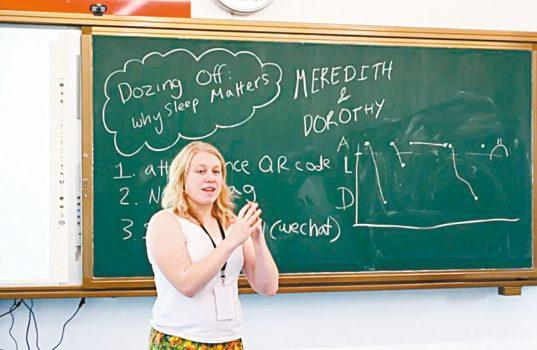 Dozing Off:
Why Sleep Matters
MEREDITH
&
DOROTHY
1. QR code
2.
3. (wechat)
A
L
D